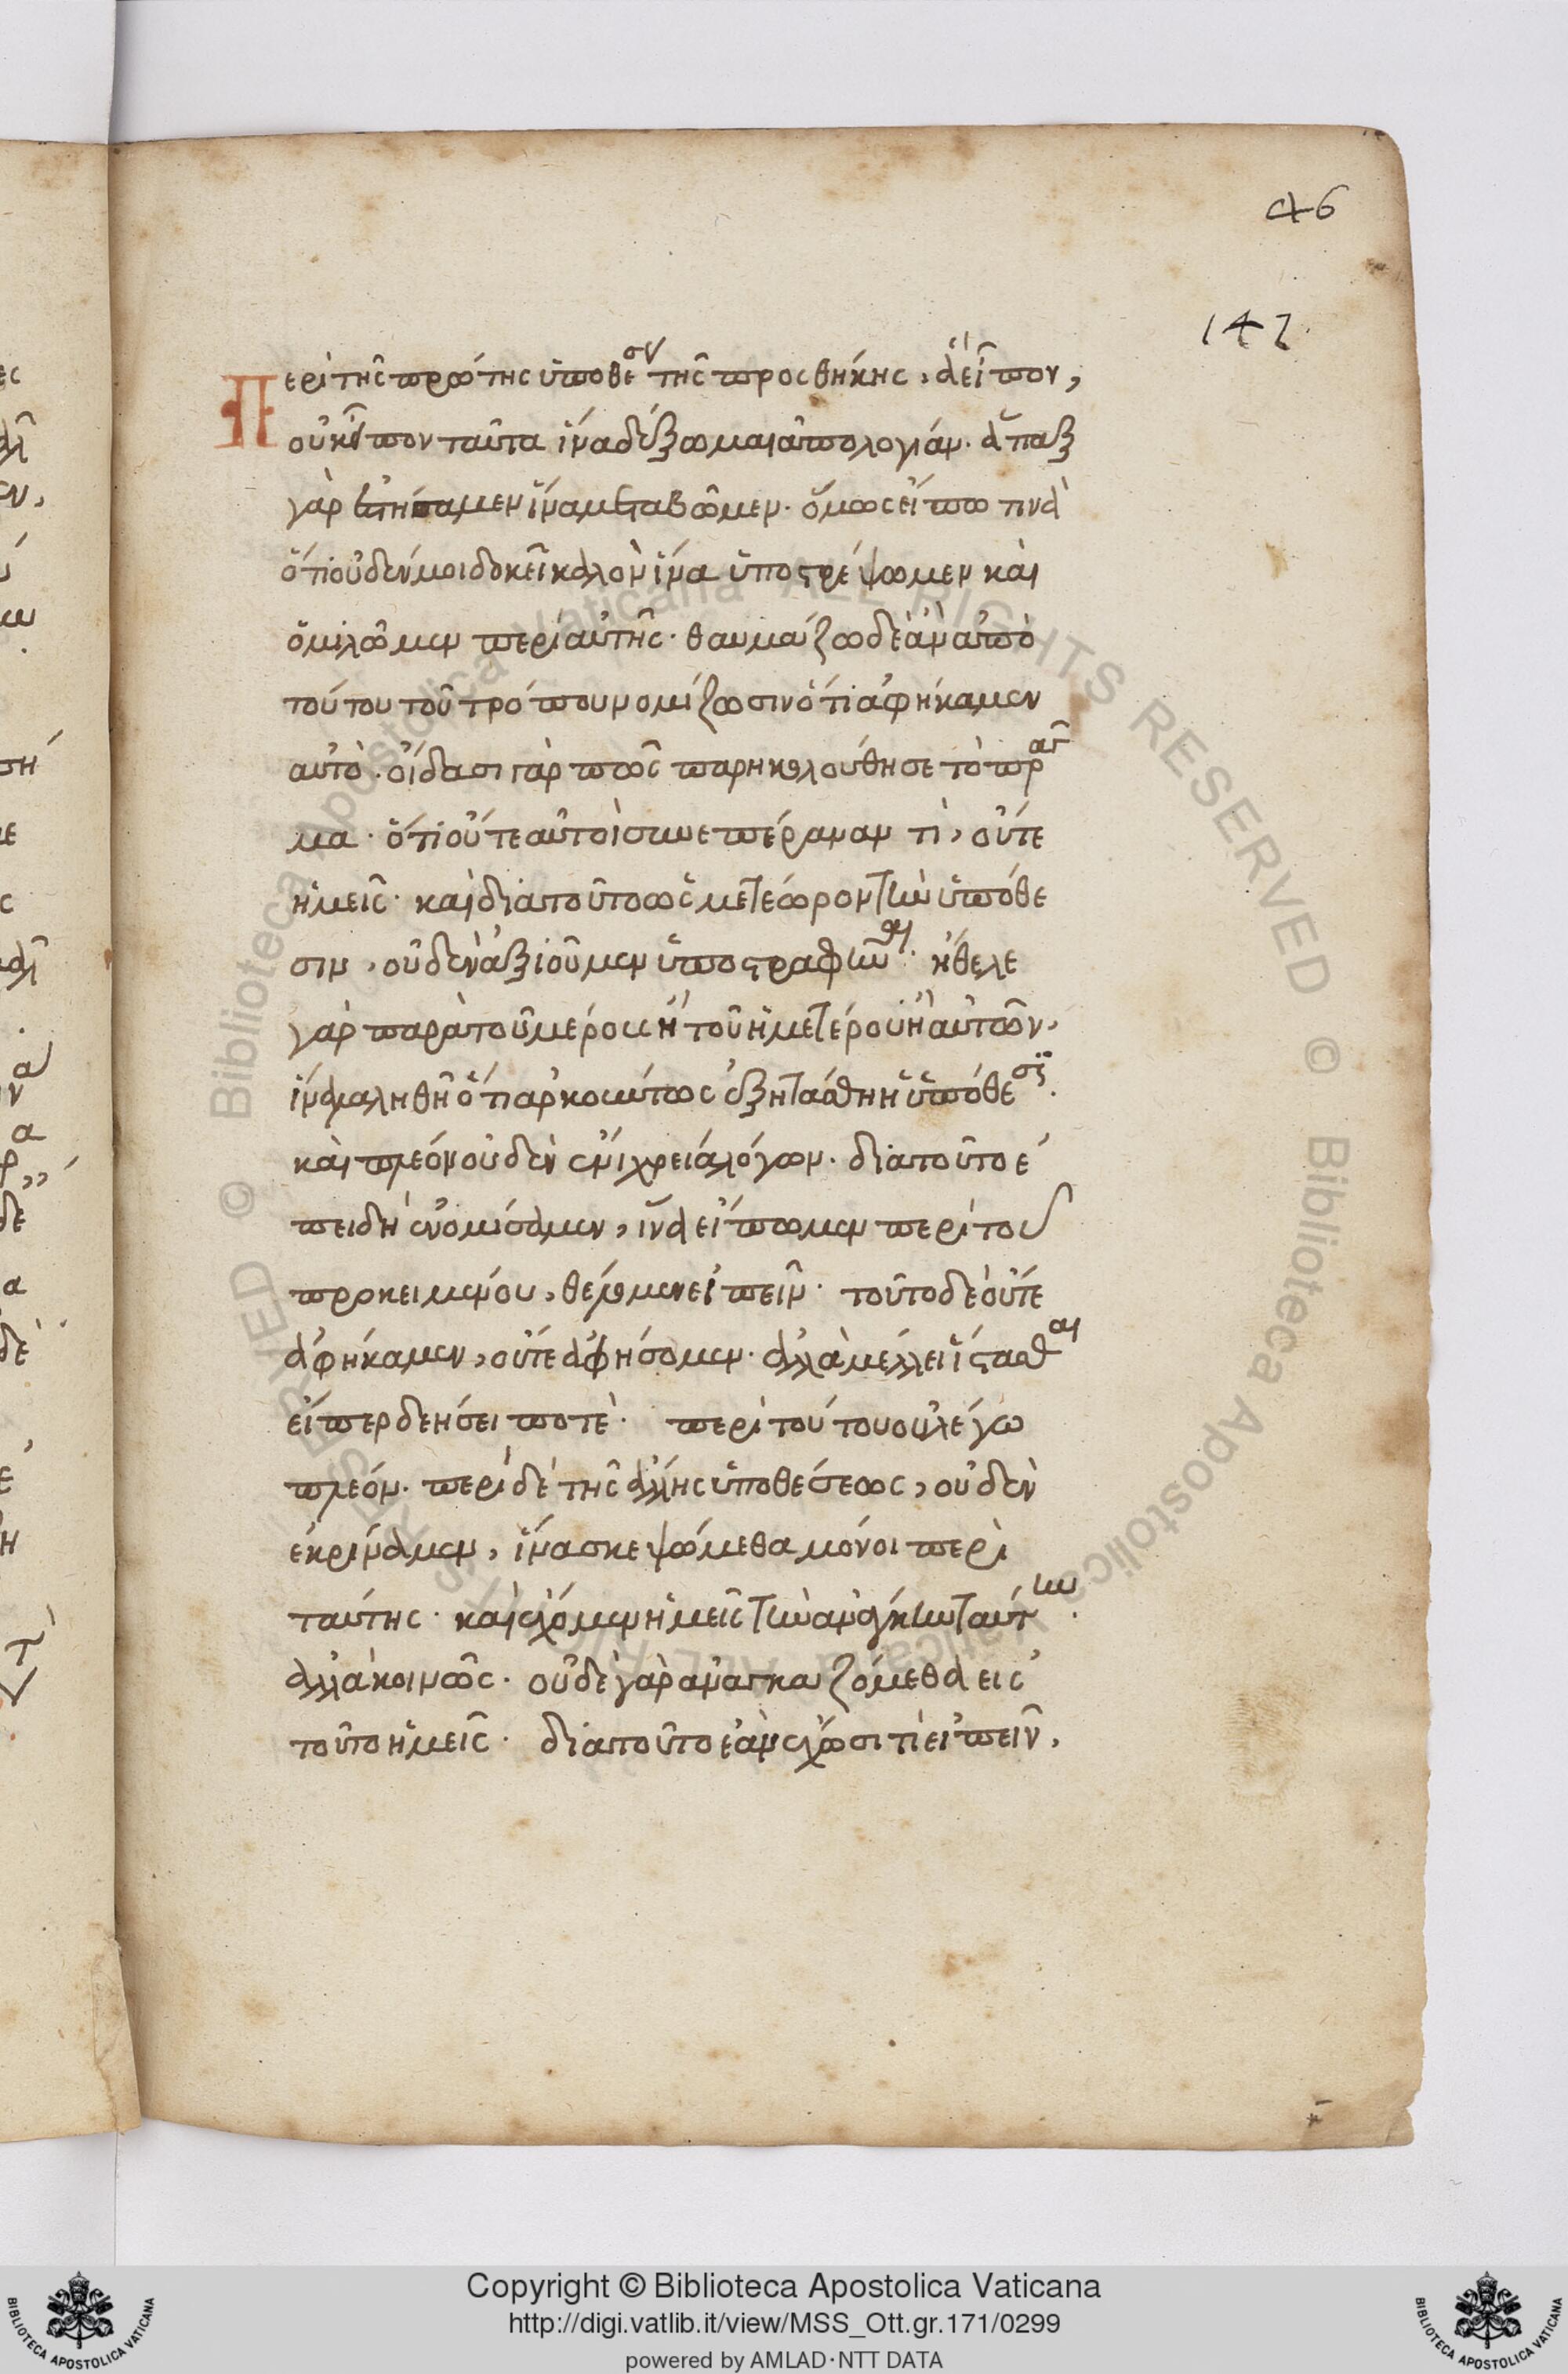 46
147
Περὶ τῆς πρώτης ὑποθέσεως τῆς προσθήκης, ἃ εἶπον,
οὐκ εἶπον ταῦτα ἵνα δέξωμαι ἀπολογίαν. ἅπαξ
γὰρ ἐποιήσαμεν ἵνα μεταβῶμεν. ὅμως εἴπω τινὰ
ὅτι οὐδέν μοι δοκεῖ καλὸν ἵνα ὑποστρέψωμεν καὶ
ὁμιλῶμεν περὶ αὐτῆς. θαυμάζω δὲ ἂν ἀπὸ
τούτου τοῦ τρόπου νομίζωσιν ὅτι ἀφήκαμεν
αὐτό. οἴδασι γὰρ πῶς παρηκολούθησε τὸ πρᾶγ
μα. ὅτι οὔτε αὐτοὶ συνεπέραναν τὶ, οὔτε
ἡμεῖς. καὶ διατοῦτο ὡς μετέωρον τὴν ὑπόθε
σιν, οὐδὲν ἀξιοῦμεν ὑποστραφῆναι. ἤθελε
γὰρ παρὰ τοῦ μέρους ἢ τοῦ ἡμετέρου ἢ αὐτῶν,
ἵνα κληθῇ ὅτι ἀρκούντως ἐξητάσθη ἡ ὑπόθεσις.
καὶ πλέον οὐδὲν ἔνι χρεία λόγων. διατοῦτο ἐ
πειδὴ ἐνομίσαμεν, ἵνα εἴπωμεν περὶ τοῦ
προκειμένου, θέλομεν εἰπεῖν. τοῦτο δὲ οὔτε
ἀφήκαμεν, οὔτε ἀφήσομεν. ἀλλὰ μέλλει ἵστασθαι
εἴπερ δεήσει ποτέ. περὶ τούτου οὐ λέγω
πλέον. περὶ δὲ τῆς ἄλλης ὑποθέσεως, οὐδὲν
ἐκρίναμεν, ἵνα σκεψώμεθα μόνοι περὶ
ταύτης. καὶ ἔχομεν ἡμεῖς τὴν ἀνάγκην ταύτην.
ἀλλὰ κοινῶς. οὐδὲ γὰρ ἀναγκαζόμεθα εἰς
τοῦτο ἡμεῖς. διατοῦτο ἐὰν ἔχωσι τὶ εἰπεῖν,
© Biblioteca Apostolica Vaticana ALL RIGHTS RESERVED
Copyright © Biblioteca Apostolica Vaticana
http://digi.vatlib.it/view/MSS_Ott.gr.171/0299
powered by AMLAD·NTT DATA
BIBLIOTECA APOSTOLICA VATICANA
BIBLIOTECA APOSTOLICA VATICANA